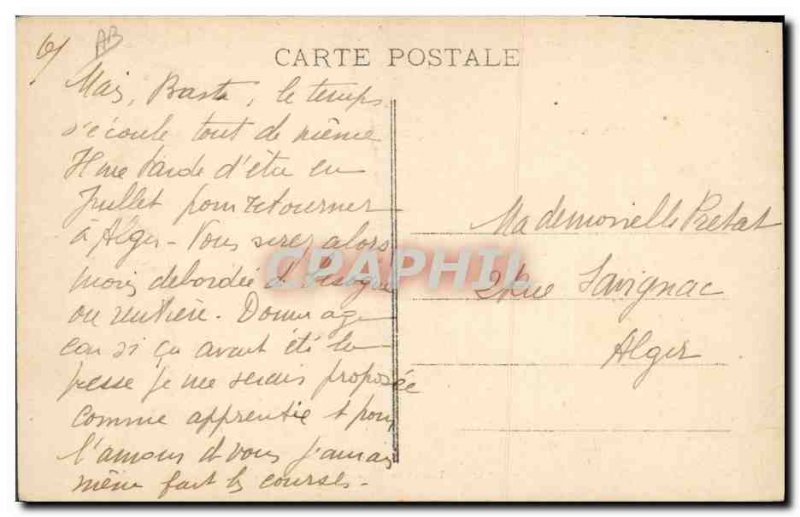 6/
AB
CARTE POSTALE
Mais, Basta, le temps
s'écoule tout de même
Il me tarde d'être en
Juillet pour retourner
à Alger - Vous serez alors
moins debordée d'besogne
ou rentière. Dommage
car si ça avait été la
presse je me serais proposée
comme apprentie & pour
l'amour d vous j'aurais
même fait les courses.
CPAPHIL
Mademoiselle Pretat
2 Rue Savignac
Alger